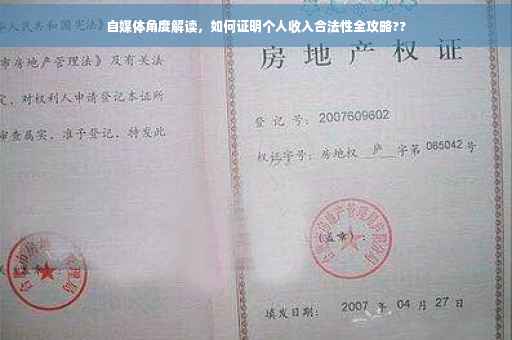 自媒体角度解读，如何证明个人收入合法性全攻略??
人民共和国宪法》
市房地产管理法》及有关法
定，对权利人申请登记本证所
审查属实，准予登记，特发此
房地产权证
登记号：2007609602
权证字号：房地权 庐 字第 085042 号
(盖章)：
填发日期：2007 年 04 月 27 日